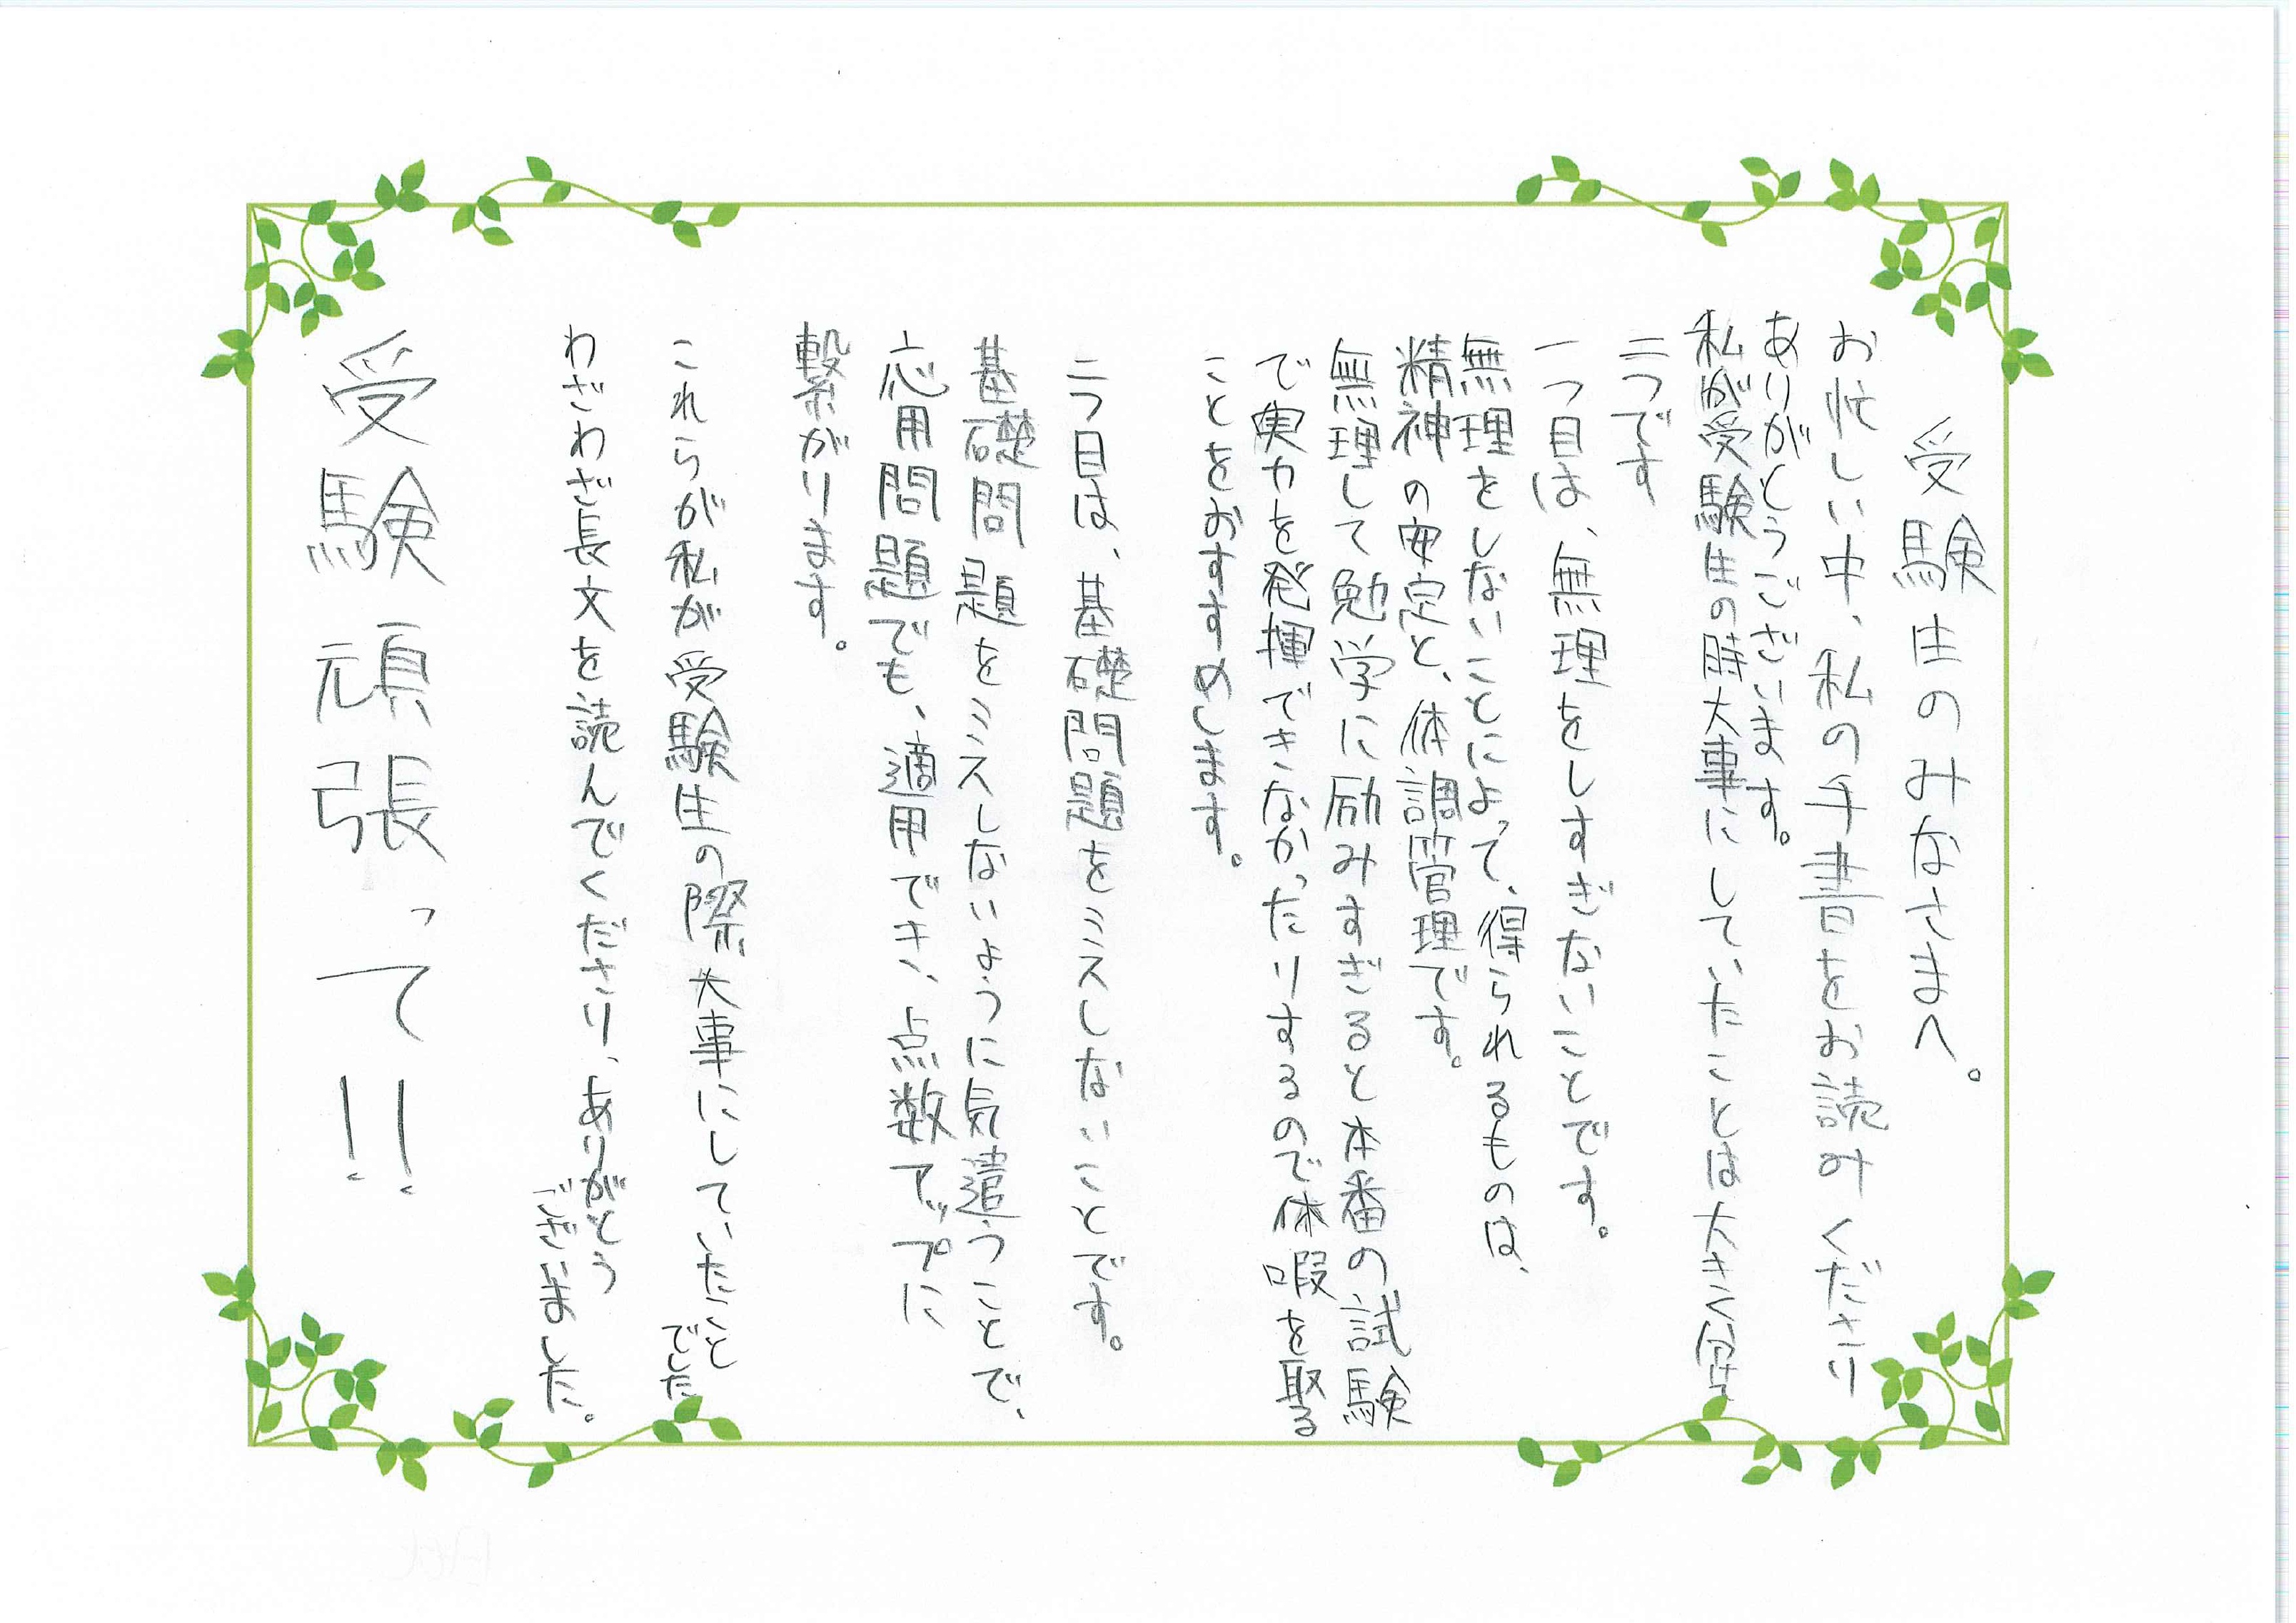 受験生のみなさまへ。
お忙しい中、私の手書をお読みくださり
ありがとうございます。
私が受験生の時大事にしていたことは大きく分けて
二つです
一つ目は、無理をしすぎないことです。
無理をしないことによって、得られるものは、
精神の安定と、体調管理です。
無理して勉学に励みすぎると本番の試験
で実力を発揮できなかったりするので休暇を取る
ことをおすすめします。
二つ目は、基礎問題をミスしないことです。
基礎問題をミスしないように気遣うことで、
応用問題でも、適用でき、点数アップに
繋がります。
これらが私が受験生の際、大事にしていたことでした
わざわざ長文を読んでくださり、ありがとうございました。
受験頑張って!!